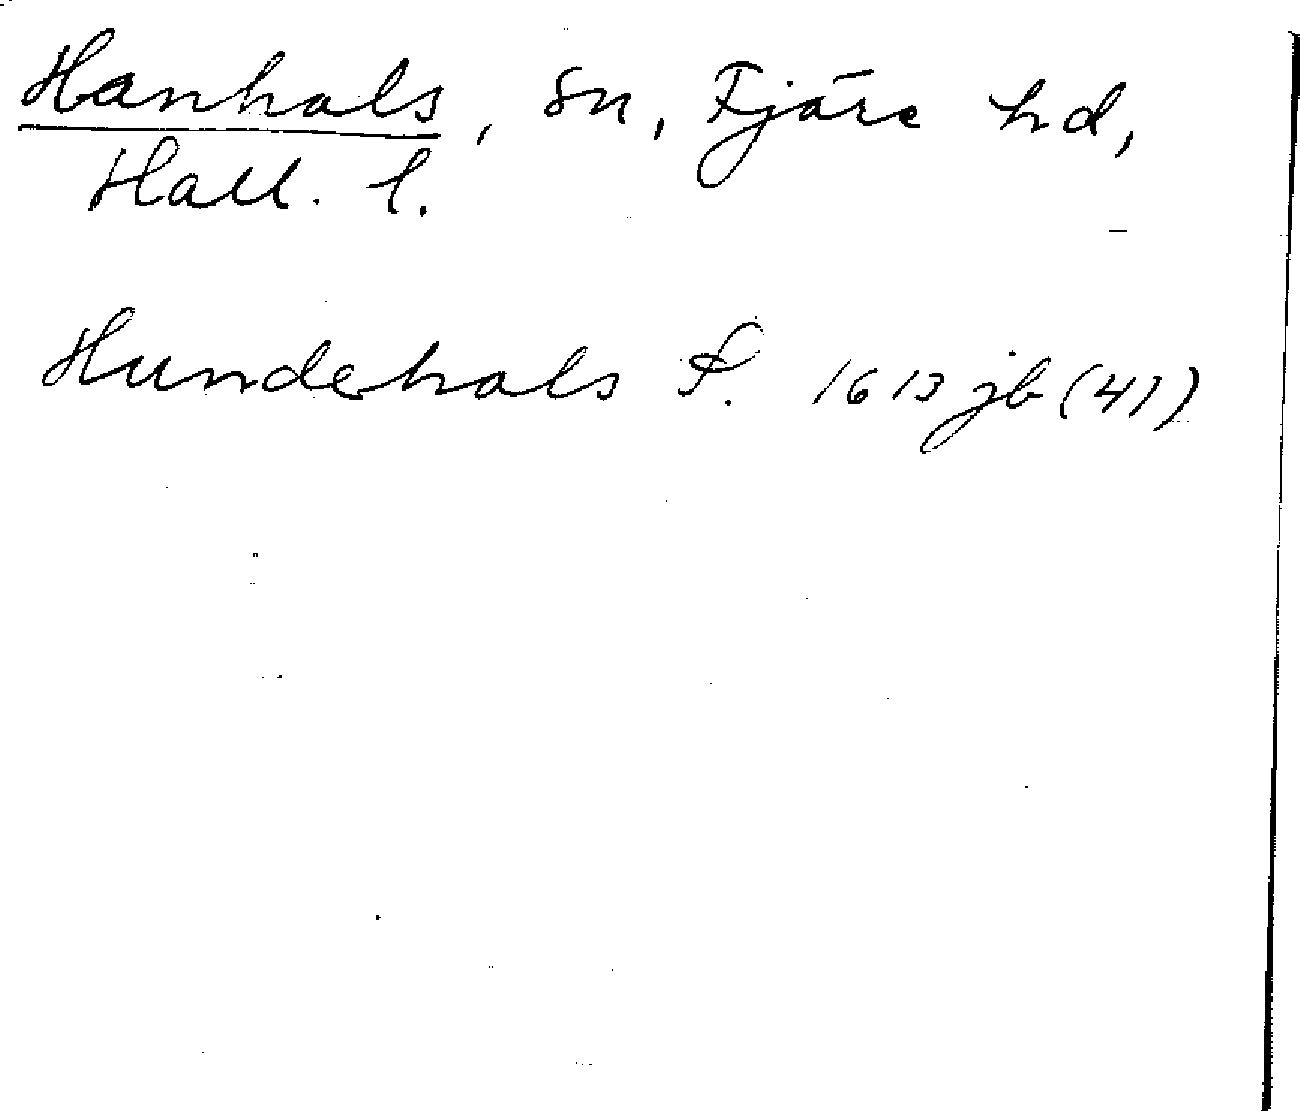 Hanhals, sn, Fjäre hd,
Hall. l.
Hundehals S. 1613 jb (41)